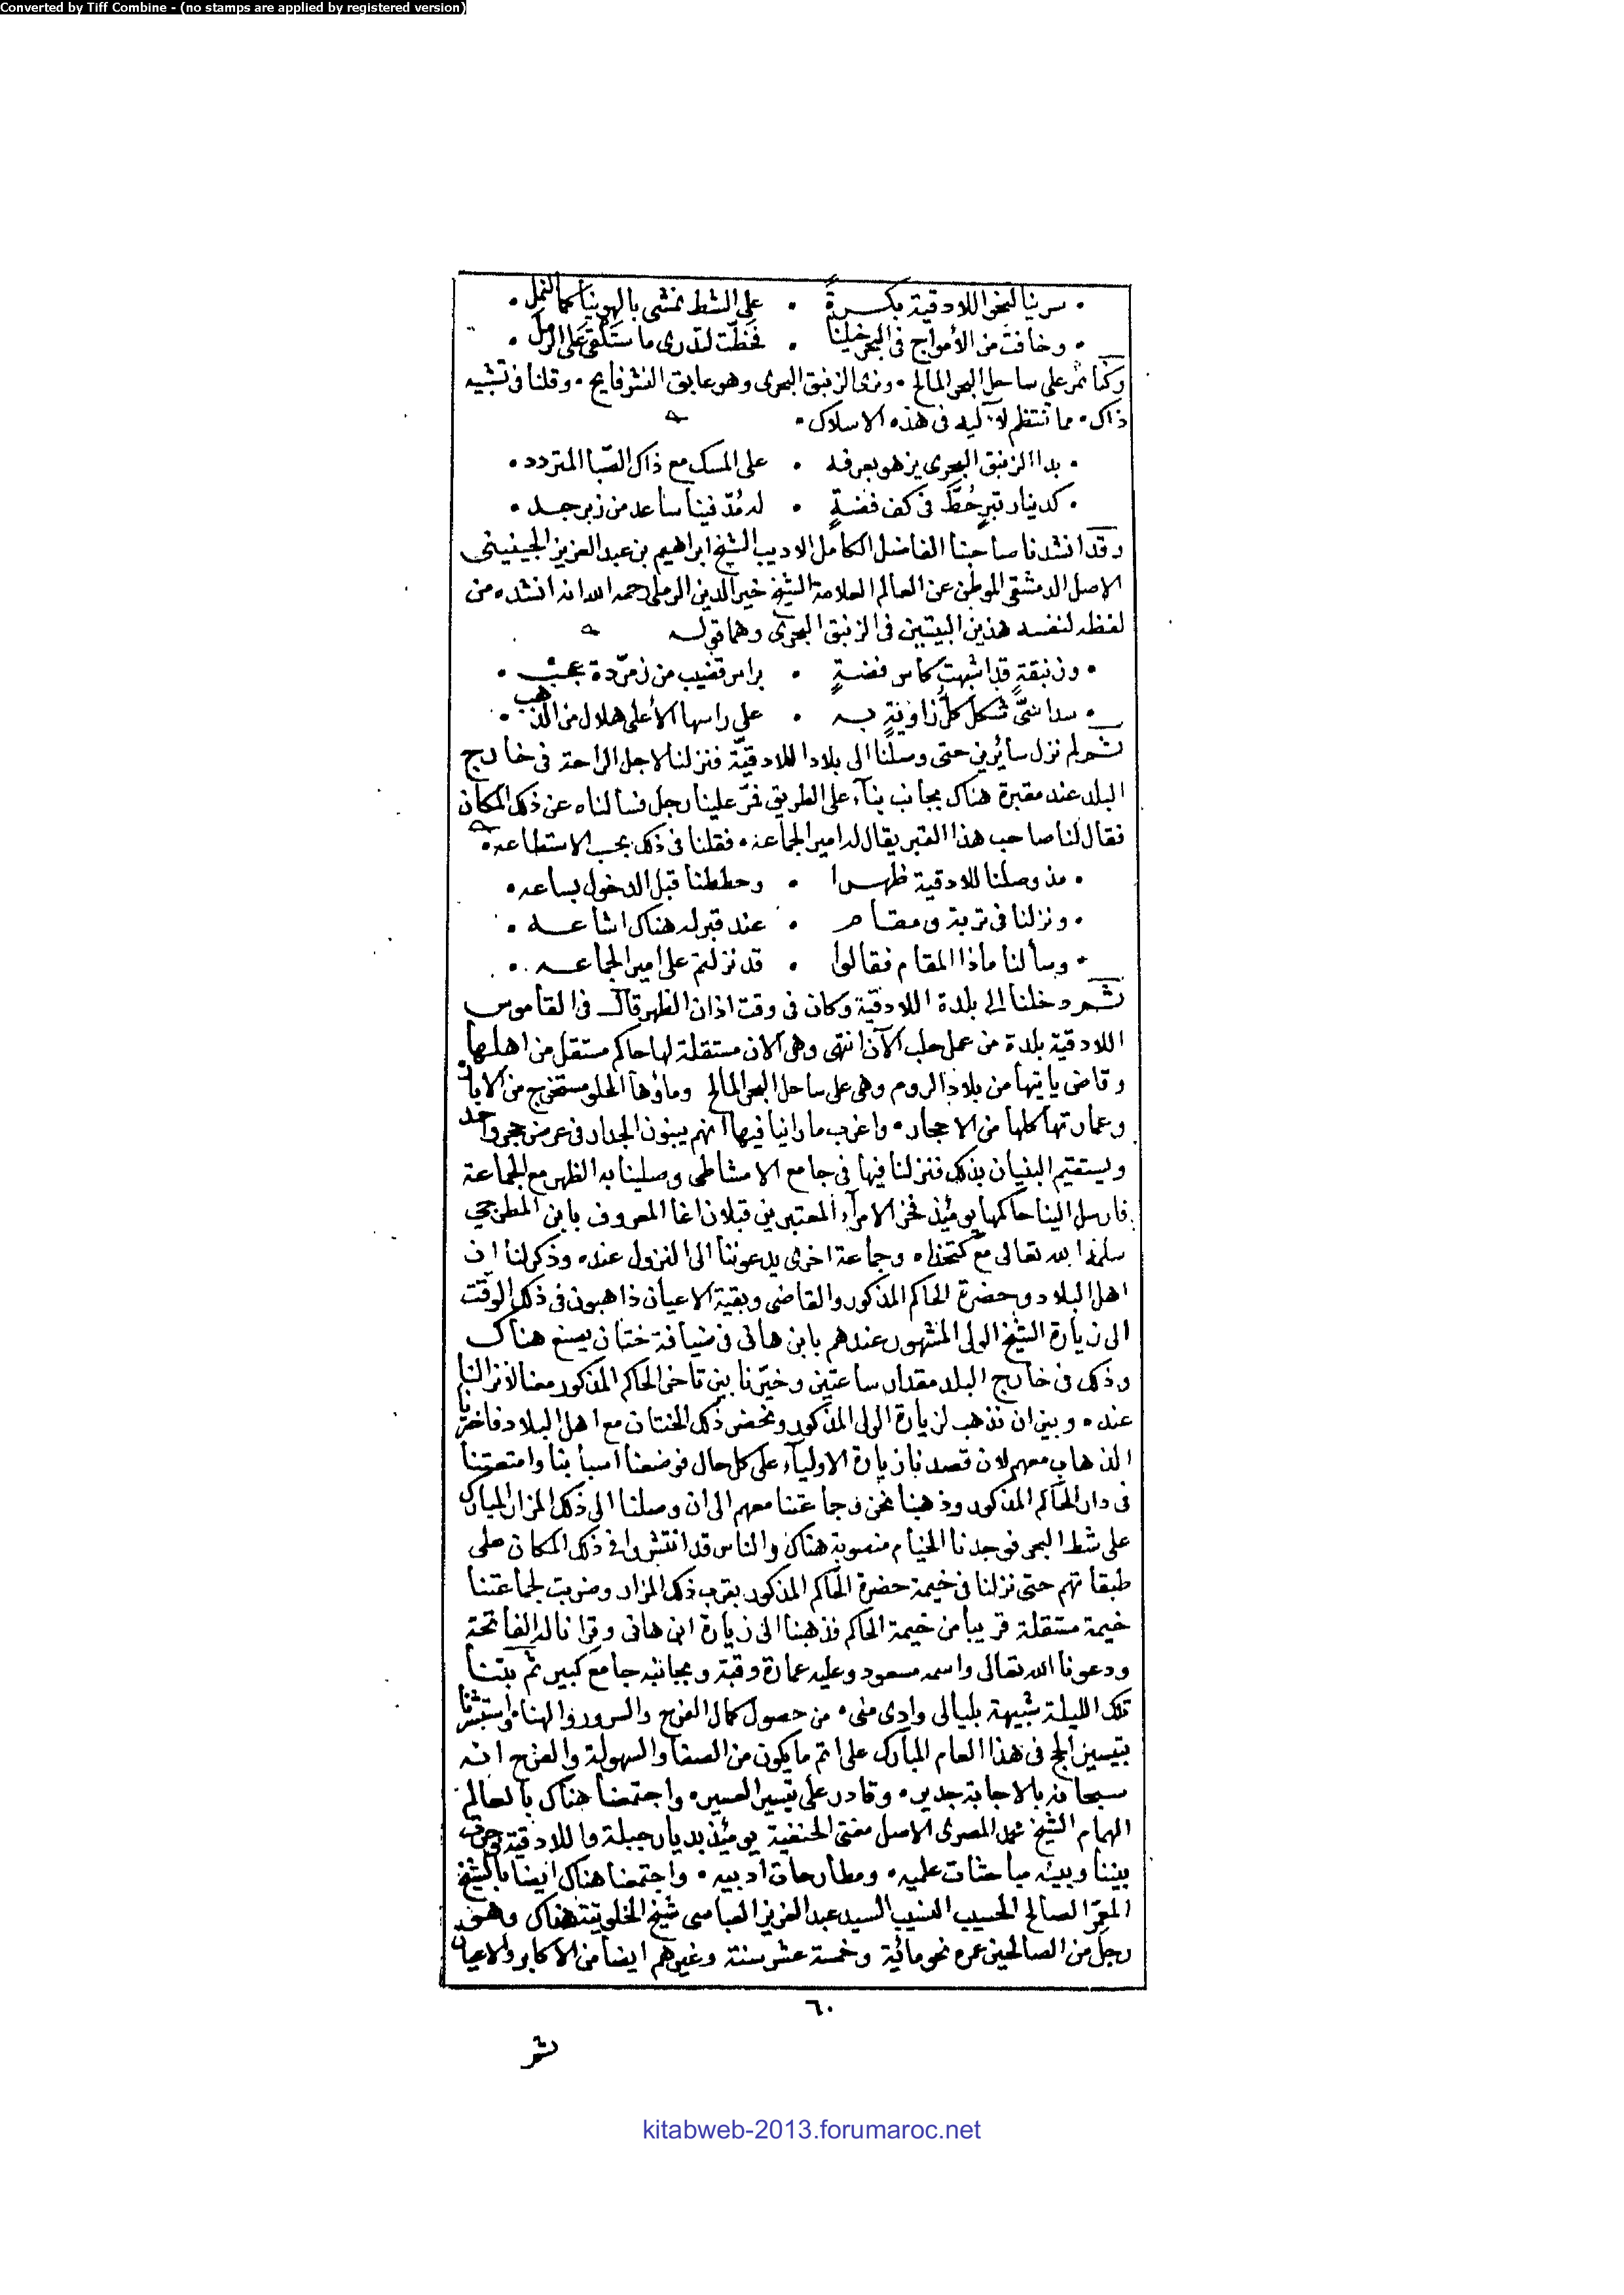 Converted by Tiff Combine - (no stamps are applied by registered version)
• سرينا لنحو اللادقية بكرةً • على الشط نمشى بالهوينا كما النمل •
• وخافت من الأمواج فى البحر خيلنا • فخطّت لتدرى ما ستلقى على الرمل •
وكنا نمر على ساحل البحر المالح • ونرى الزنبق البحرى وهو عابق النشر فايح • وقلنا فى تشبيه
ذاك • مما تنتظم لآليه فى هذه الاسلاك •
• بدا الزنبق البحرى يزهو بعرفه • على المسك مع ذاك الصّبا المتردد •
• كدينار تبرٍ حُطَّ فى كف فضةٍ • له مُدّ فينا ساعد من زبرجد •
وقد انشدنا صاحبنا الفاضل الكامل الاديب الشيخ ابراهيم بن عبد العزيز الجينينى
الاصل الدمشقى الموطن عن العالم العلامة الشيخ خير الدين الرملى رحمه الله انه انشده من
لفظه لنفسه هذين البيتين فى الزنبق البحرى وهما قوله
• وزنبقةٍ قد اشبهت كاس فضةٍ • براس قضيب من زمرّدة عجب •
• سداسىّ شكل كلّ زاويةٍ به • على راسها الأعلى هلال من الذهب •
ثم لم نزل سائرين حتى وصلنا الى بلاد اللادقيّة فنزلنا لاجل الراحة فى خارج
البلد عند مقبرة هناك بجانب بنآء على الطريق فمرّ علينا رجل فسألناه عن ذلك المكان
فقال لنا صاحب هذا القبر يقال له امير الجماعه • فقلنا فى ذلك بحسب الاستطاعه •
• مذ وصلنا للادقية ظهرا • وحططنا قبل الدخول بساعه •
• ونزلنا فى تربة ومقام • عند قبر له هناك اشاعه •
• وسألنا ماذا المقام فقالوا • قد نزلتم على امير الجماعه •
ثم دخلنا الى بلدة اللادقيّة وكان فى وقت اذان الظهر قال فى القاموس
اللادقية بلدة من عمل حلب الآن انتهى وهى الان مستقلة لها حاكم مستقل من اهلها
وقاض ياتيها من بلاد الروم وهى على ساحل البحر المالح وماؤها الحلو مستخرج من الابار
وعمارتها كلها من الاحجار • واغرب ما راينا فيها انهم يبنون الجدار فى عرض حجر واحد
ويستقيم البنيان بذلك فنزلنا فيها فى جامع الامشاطى وصلينا به الظهر مع الجماعة
فارسل الينا حاكمها يومئذ فخر الامرآء المعتبرين قبلان اغا المعروف بابن المطرجى
سلمه الله تعالى مع كتخداه وجماعة اخرى يدعوننا الى النزول عنده وذكر لنا ان
اهل البلاد وحضرة الحاكم المذكور والقاضى وبقية الاعيان ذاهبون فى ذلك الوقت
الى زيارة الشيخ الولى المشهور عندهم بابن هانى فى ضيافة ختان يصنع هناك
وذلك فى خارج البلد مقدار ساعتين وخيّرنا بين تاخر الحاكم المذكور معنا لانزالنا
عنده وبين ان نذهب لزيارة الولى المذكور ونحضر ذلك الختان مع اهل البلاد فاخترنا
الذهاب معهم لان قصدنا زيارة الاوليآء على كل حال فوضعنا اسبابنا وامتعتنا
فى دار الحاكم المذكور وذهبنا نحن وجماعتنا معهم الى ان وصلنا الى ذلك المزار المبارك
على شط البحر فوجدنا الخيام منصوبة هناك والناس قد انتشروا فى ذلك المكان على
طبقاتهم حتى نزلنا فى خيمة حضرة الحاكم المذكور بقرب ذلك المزار وضربت لجماعتنا
خيمة مستقلة قريبا من خيمة الحاكم فذهبنا الى زيارة ابن هانى وقرانا له الفاتحة
ودعونا الله تعالى واسمه مسعود وعليه عمارة وقبة وبجانبه جامع كبير ثم بتنا
تلك الليلة شبيهة بليالى وادى منى • من حصول كمال الفرح والسرور والهنا • واستبشرنا
بتيسير الحج فى هذا العام المبارك على اتم ما يكون من الصفا والسهولة والفرح انه
سبحانه بالاجابة جدير • وقادر على تيسير العسير • واجتمعنا هناك بالعالم
الهمام الشيخ محمد المصرى الاصل مفتى الحنفية يومئذ بديار جبلة واللادقية وجرت
بيننا وبينه مباحثات علميه • ومطارحات أدبيه • واجتمعنا هناك ايضا بالشيخ
المعمّر الصالح الحسيب النسيب السيد عبد العزيز العباسى شيخ الخلوتية هناك وهو
رجل من الصالحين عمره نحو مائية وخمسة عشر سنة وغيرهم ايضا من الاكابر والاعيان
٦٠
ثم
kitabweb-2013.forumaroc.net